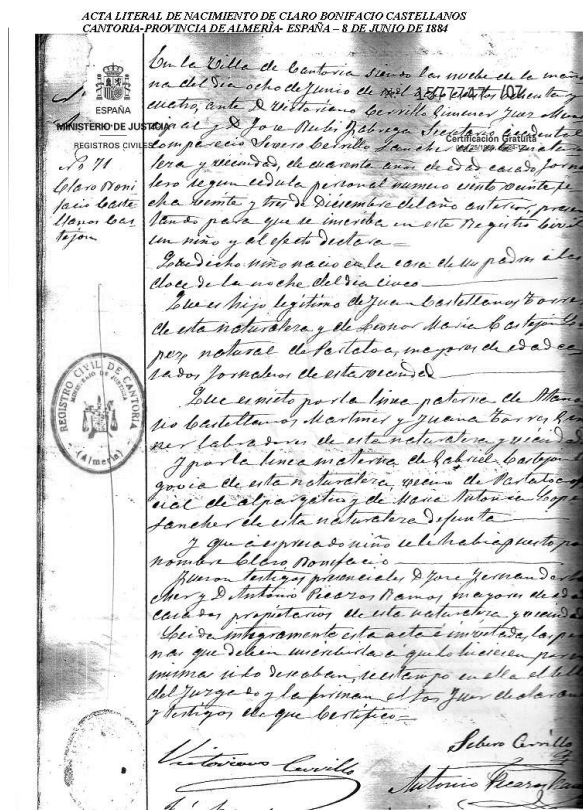 ACTA LITERAL DE NACIMIENTO DE CLARO BONIFACIO CASTELLANOS
CANTORIA-PROVINCIA DE ALMERÍA- ESPAÑA – 8 DE JUNIO DE 1884
ESPAÑA
MINISTERIO DE JUSTICIA
REGISTROS CIVILES
Certificación Gratuita
Nº 71
Claro Boni
facio Caste
llanos Cas
tejon
REGISTRO CIVIL DE CANTORIA
MINISTERIO DE JUSTICIA
(Almería)
En la Villa de Cantoria siendo las nueve de la maña
na del dia ocho de Junio de mil
cuatro, ante D. Victoriano Cerrillo Gimenez Juez Muni
y D. Jose Rubi Secretario
comparecio Severo Cerrillo
y vecindad, de cuarenta años de edad casado, jorna
lero segun cedula personal numero ciento veinte, fe
cha veinte y tres de Diciembre del año anterior, presen
tando para que se inscriba en este Registro Civil
un niño y al efecto declara=
Que dicho niño nacio en la casa de sus padres a las
doce de la noche del dia cinco
Que es hijo legitimo de Juan Castellanos Torres
de esta naturaleza y de Leonor Maria Castejon Lo
pez, natural de Partaloa, mayores de edad ca
sados jornaleros de esta vecindad
Que es nieto por la linea paterna de
no Castellanos Martinez y Juana Torres
labradores de esta naturaleza y vecindad
Y por la linea materna de Gabriel Castejon
de esta naturaleza, vecino de Partaloa
de alpargatero y de Maria Antonia Lope
Sanchez de esta naturaleza defunta
Y que a espresado niño se le habia puesto por
nombre Claro Bonifacio
Fueron testigos presenciales D. Jose Fernandez
y D. Antonio Picazos Ramos mayores de eda
casados propietarios de esta naturaleza y vecinda
Leida integramente esta acta e invitadas las per
nas que deben suscribirla a que lo hiciesen por
misma si lo deseaban, se estampo en ella el sello
del Juzgado y la firman el Sr. Juez declaran
y testigos de que Certifico=
Victoriano Cerrillo
Sebero Cerrillo
Antonio Picazos